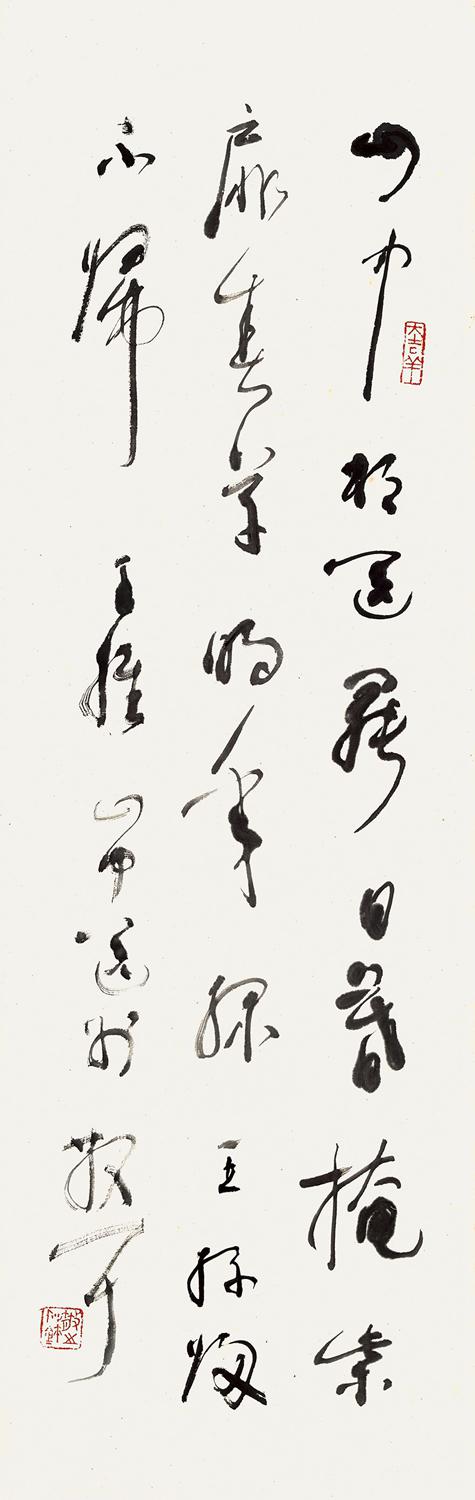 山中相送罷日暮掩柴
扉春草明年綠王孫歸
不歸 王維山中送別 散耳
大吉羊